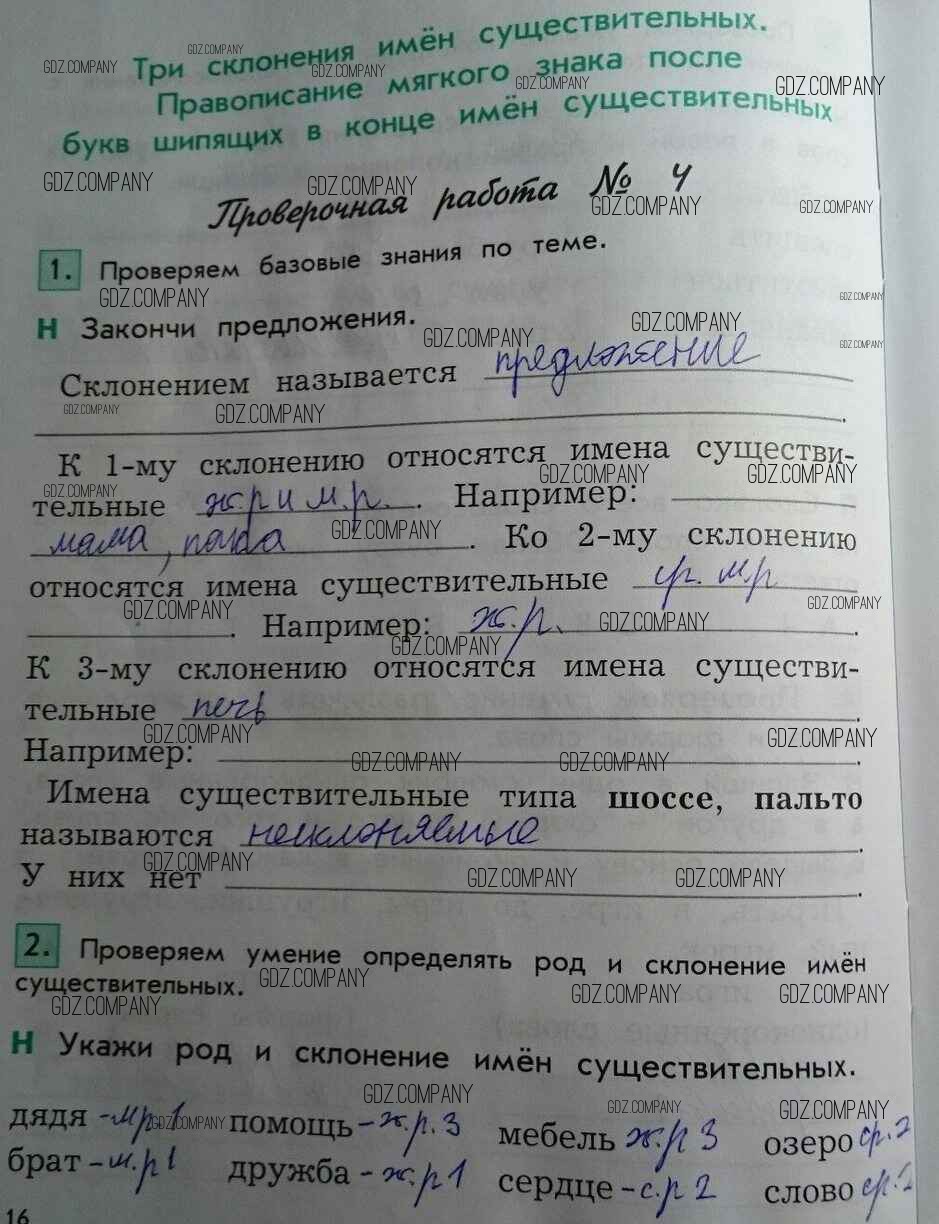 Три склонения имён существительных.
Правописание мягкого знака после
букв шипящих в конце имён существительных
Проверочная работа № 4
1. Проверяем базовые знания по теме.
Н Закончи предложения.
Склонением называется предложение
К 1-му склонению относятся имена существи-
тельные ж.р и м.р. Например:
мама, папа. Ко 2-му склонению
относятся имена существительные ср. м.р
Например: ж.р.
К 3-му склонению относятся имена существи-
тельные печь
Например:
Имена существительные типа шоссе, пальто
называются несклоняемые
У них нет
2. Проверяем умение определять род и склонение имён
существительных.
Н Укажи род и склонение имён существительных.
дядя - м р 1 помощь - ж.р. 3 мебель ж.р 3 озеро ср. 2
брат - м.р 1 дружба - ж.р 1 сердце - с.р 2 слово ср. 2
16
GDZ.COMPANY